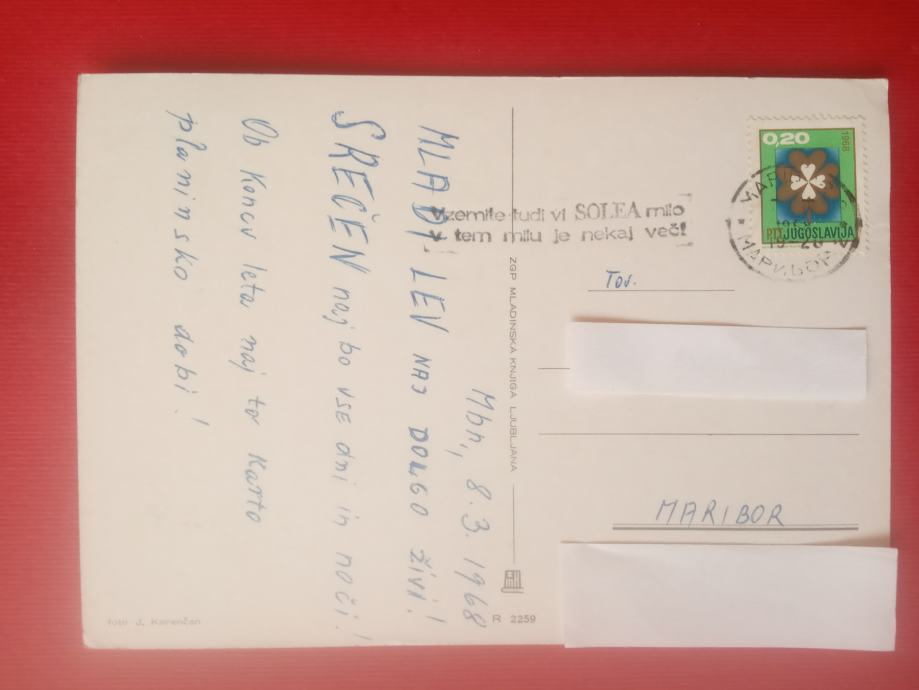 Mbr, 8.3.1968
MLADI LEV NAJ DOLGO ŽIVI!
SREČEN naj bo vse dni in noči!
Ob koncu leta naj to karto
planinsko dobi!
Vzemite tudi vi SOLEA milo
v tem milu je nekaj več!
0,20
1968
PTT JUGOSLAVIJA
МАРИБОР
Tov.
MARIBOR
ZGP MLADINSKA KNJIGA LJUBLJANA
R 2259
foto J. Korenčan